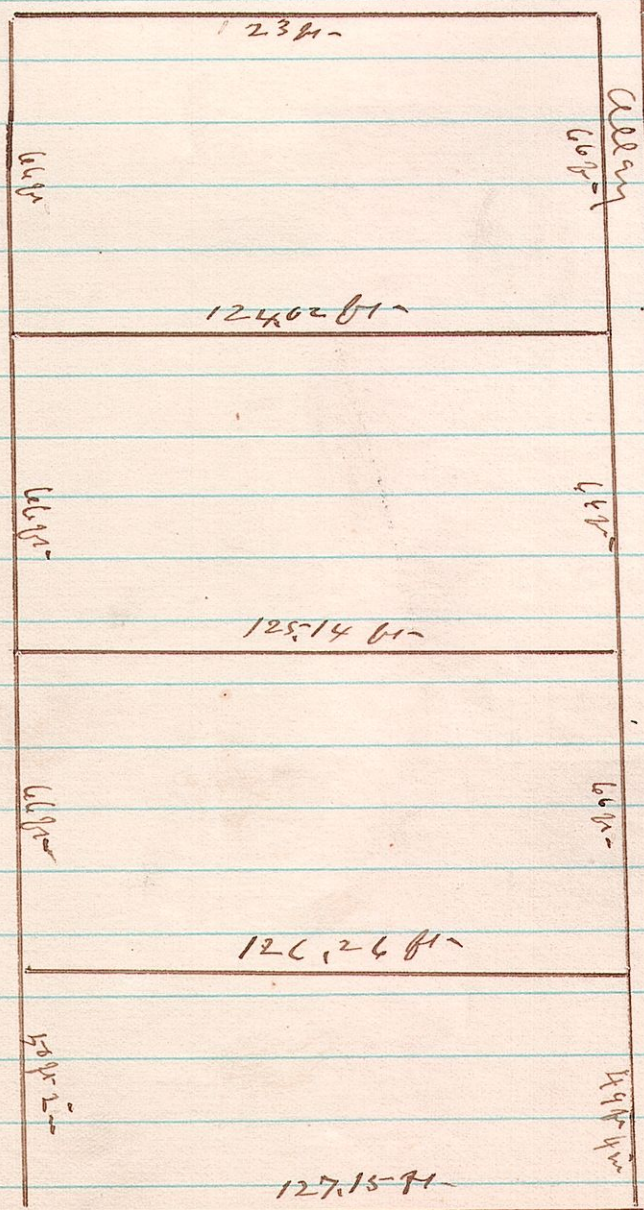 123 ft-
Alley
66 ft
66 ft-
124,02 ft-
66 ft-
66 ft-
125.14 ft-
66 ft-
66 ft-
126,26 ft-
50 ft 2 in
49 ft 4 in
127.15 ft-